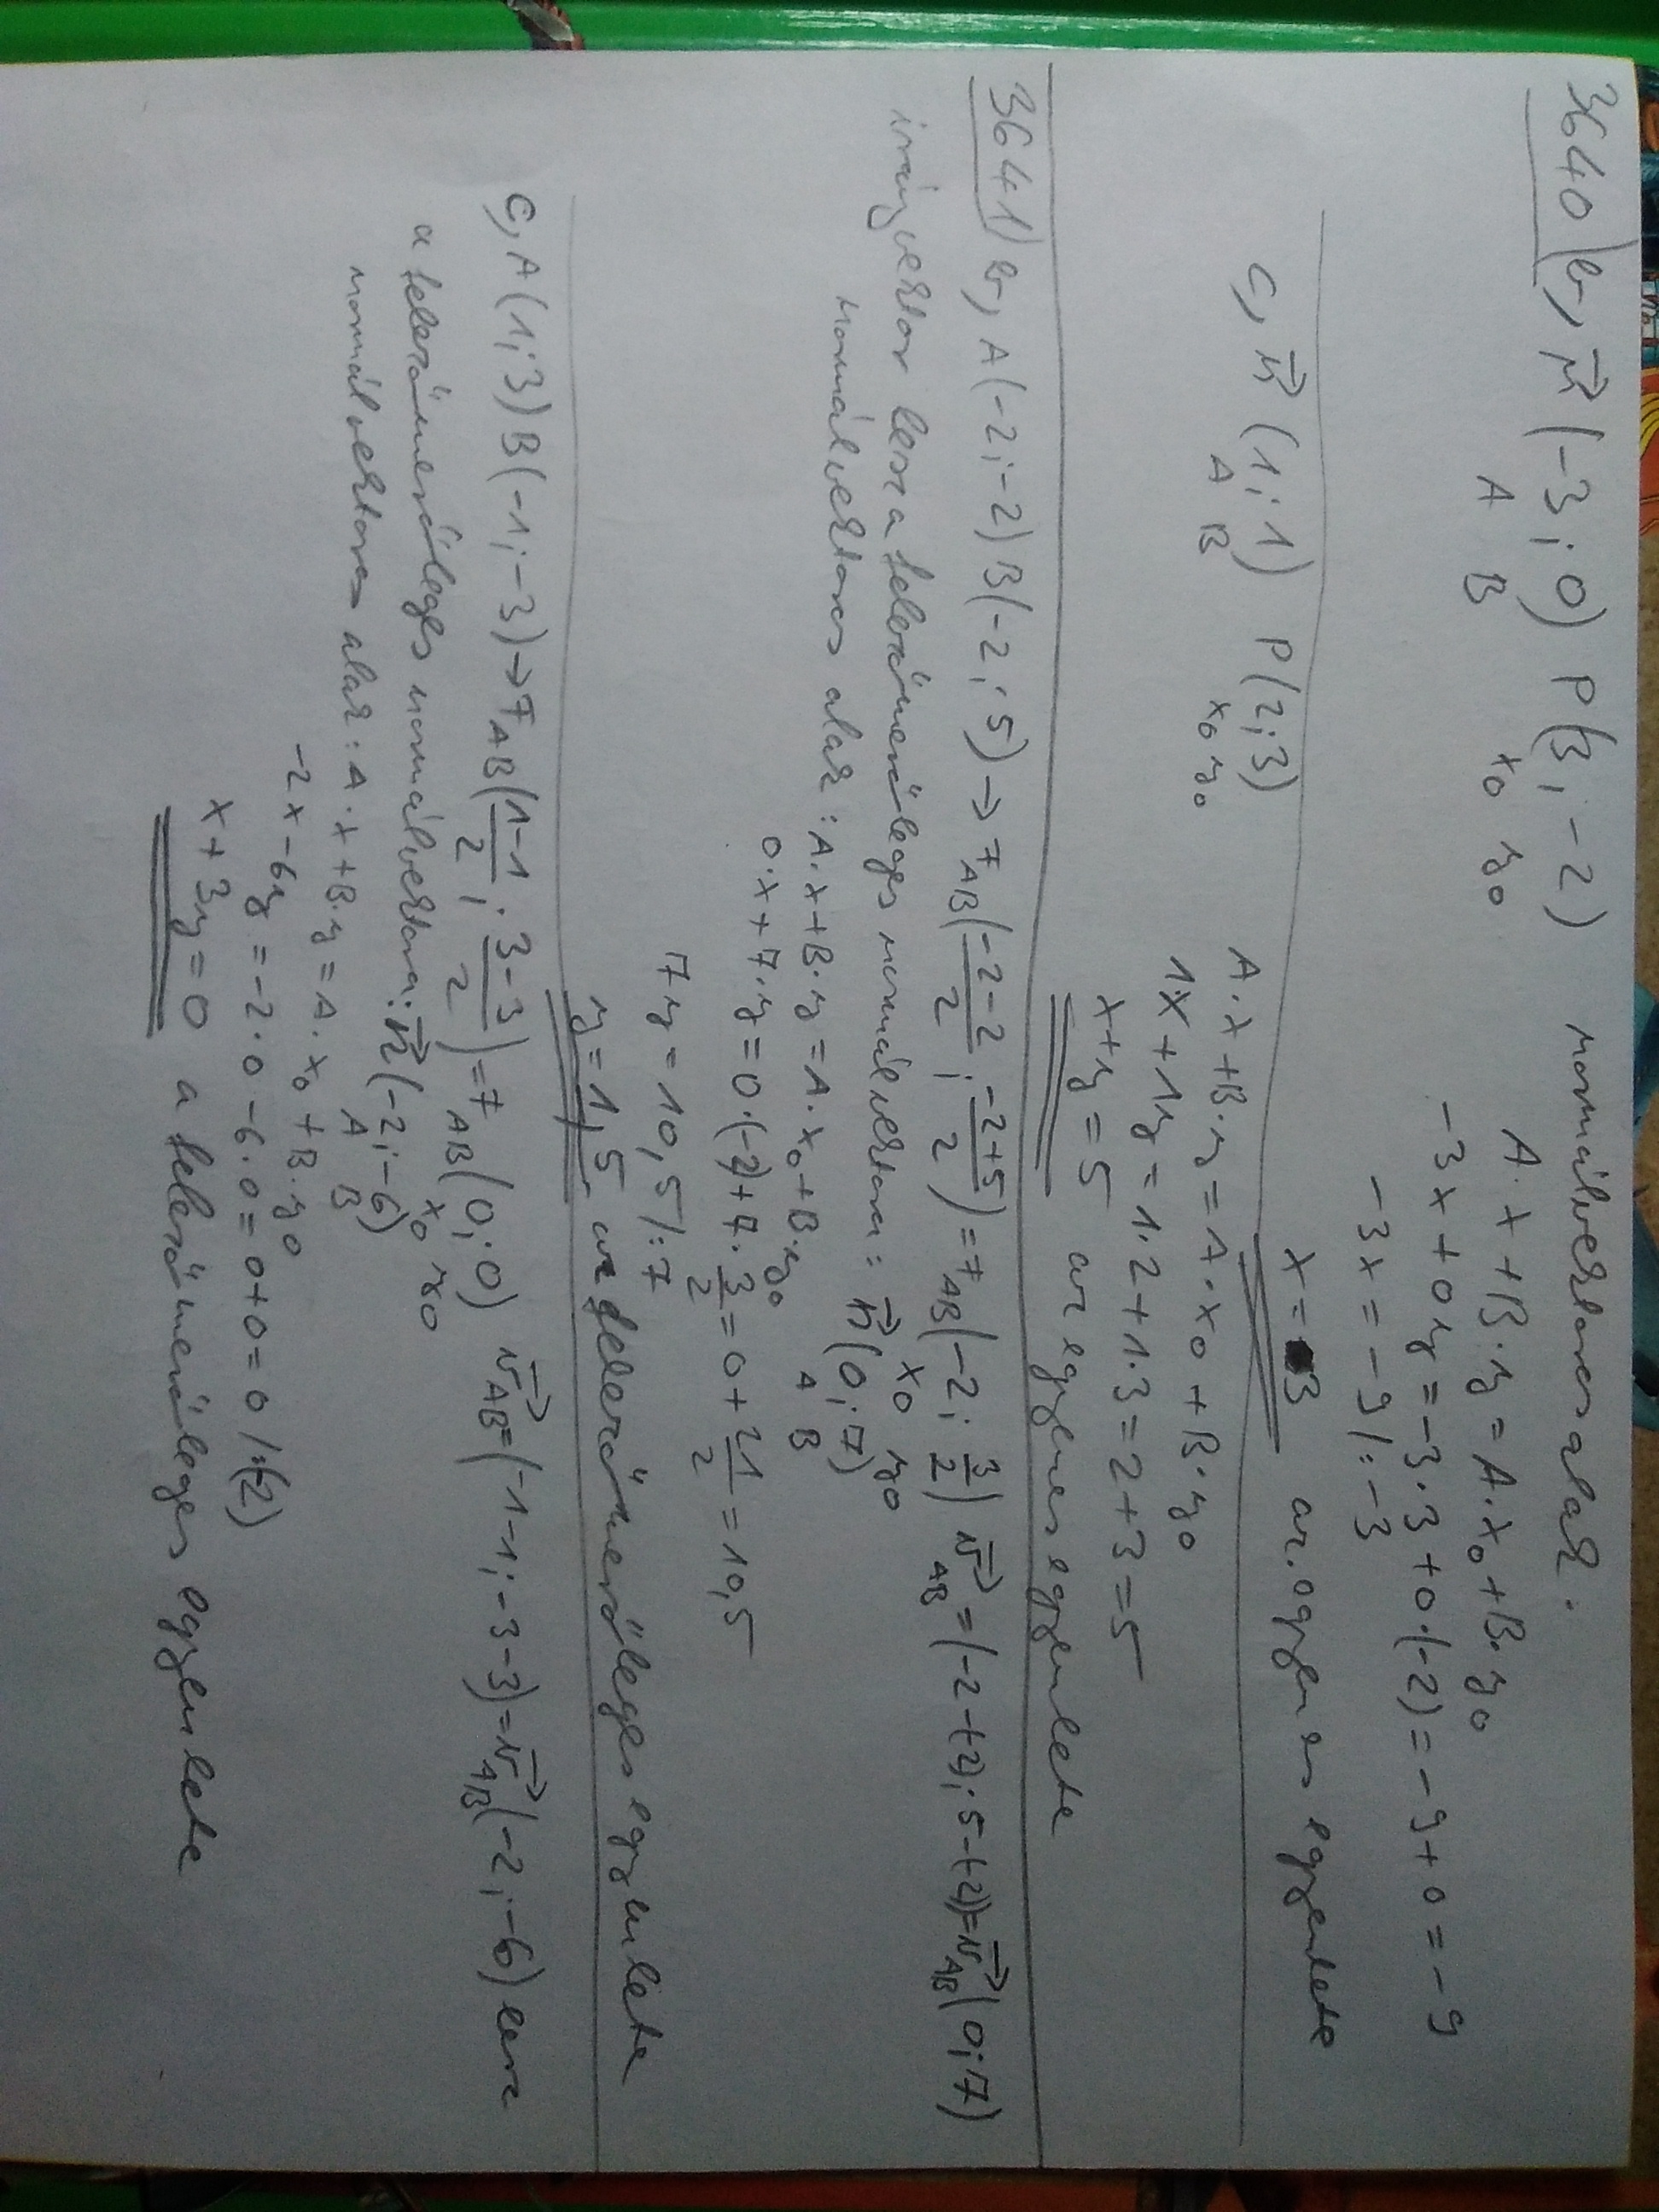 3640) b, n⃗ (-3; 0) P(3; -2) normálvektoros alak:
A B x₀ y₀
A·x+B·y=A·x₀+B·y₀
-3x+0y=-3·3+0·(-2)=-9+0=-9
-3x=-9 /:-3
x=3 az egyenes egyenlete
c, n⃗ (1; 1) P(2;3)
A B x₀ y₀
A·x+B·y=A·x₀+B·y₀
1·x+1y=1·2+1·3=2+3=5
x+y=5 az egyenes egyenlete
3641) b, A(-2;-2) B(-2; 5)→F_AB(-2-2/2; -2+5/2)=F_AB(-2; 3/2) v⃗_AB=(-2-(-2); 5-(-2))=v⃗_AB(0;7)
x₀ y₀
irányvektor lesz a felezőmerőleges normálvektora: n⃗(0; 7)
A B
normálvektoros alak: A·x+B·y=A·x₀+B·y₀
0·x+7·y=0·(-2)+7·3/2=0+21/2=10,5
7y=10,5 /:7
y=1,5 a felezőmerőleges egyenlete
c, A(1;3) B(-1;-3)→F_AB(1-1/2; 3-3/2)=F_AB(0;0) v⃗_AB=(-1-1;-3-3)=v⃗_AB(-2;-6) lesz
x₀ y₀
a felezőmerőleges normálvektora: n⃗(-2;-6)
A B
normálvektoros alak: A·x+B·y=A·x₀+B·y₀
-2x-6y=-2·0-6·0=0+0=0 /:(-2)
x+3y=0 a felezőmerőleges egyenlete